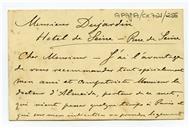 APMA/CX721/255
Monsieur Dujardin
Hotel de Seine - Rue de Seine
Cher Monsieur - J'ai l'avantage
de vous recommander
mon ami et Monsieur le
docteur d'Almeida, porteur de ce mot,
qui vient passer quelque temps à Paris et
qui